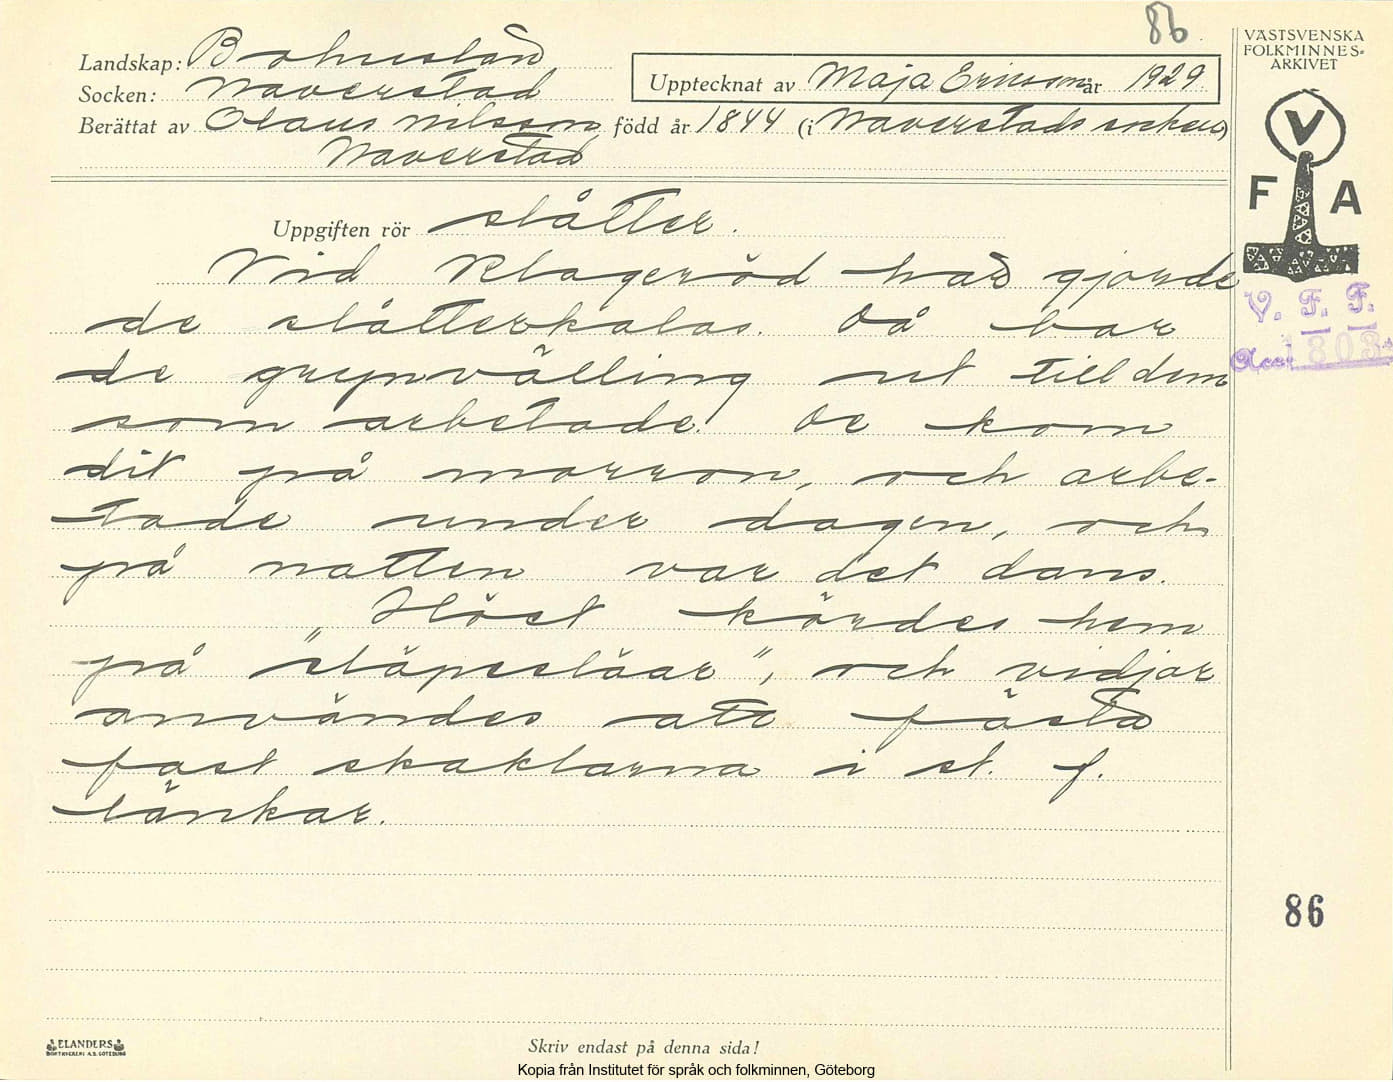 86
Landskap: Bohuslän
Socken: Naverstad
Upptecknat av Maja Ericson år 1929
Berättat av Olaus Nilsson född år 1844 (i Naverstads socken)
Naverstad
VÄSTSVENSKA
FOLKMINNES-
ARKIVET
V
F A
V. F. F.
Acc. 1803
Uppgiften rör slåtter.
Vid Klageröd har gjorde
de slåtterkalas. Då bar
de grynvälling ut till dem
som arbetade. De kom
dit på morron, och arbe-
tade under dagen, och
på natten var det dans.
Höet kördes hem
på "släpeslåar", och vidjor
användes att fästa
fast skaklarna i st. f.
länkar.
86
ELANDERS
BOKTRYCKERI A.B. GÖTEBORG
Skriv endast på denna sida!
Kopia från Institutet för språk och folkminnen, Göteborg